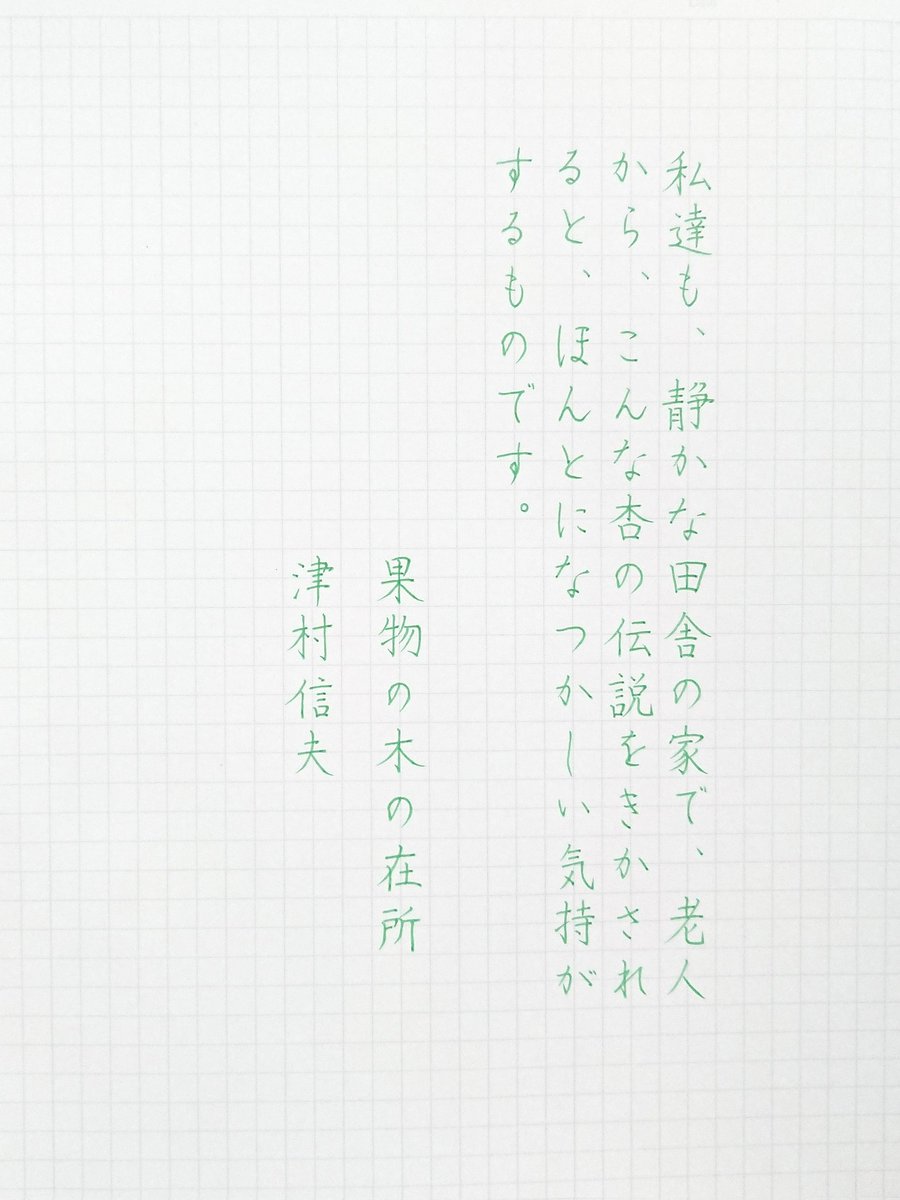 私達も、静かな田舎の家で、老人
から、こんな杏の伝説をきかされ
ると、ほんとになつかしい気持が
するものです。
果物の木の在所
津村信夫